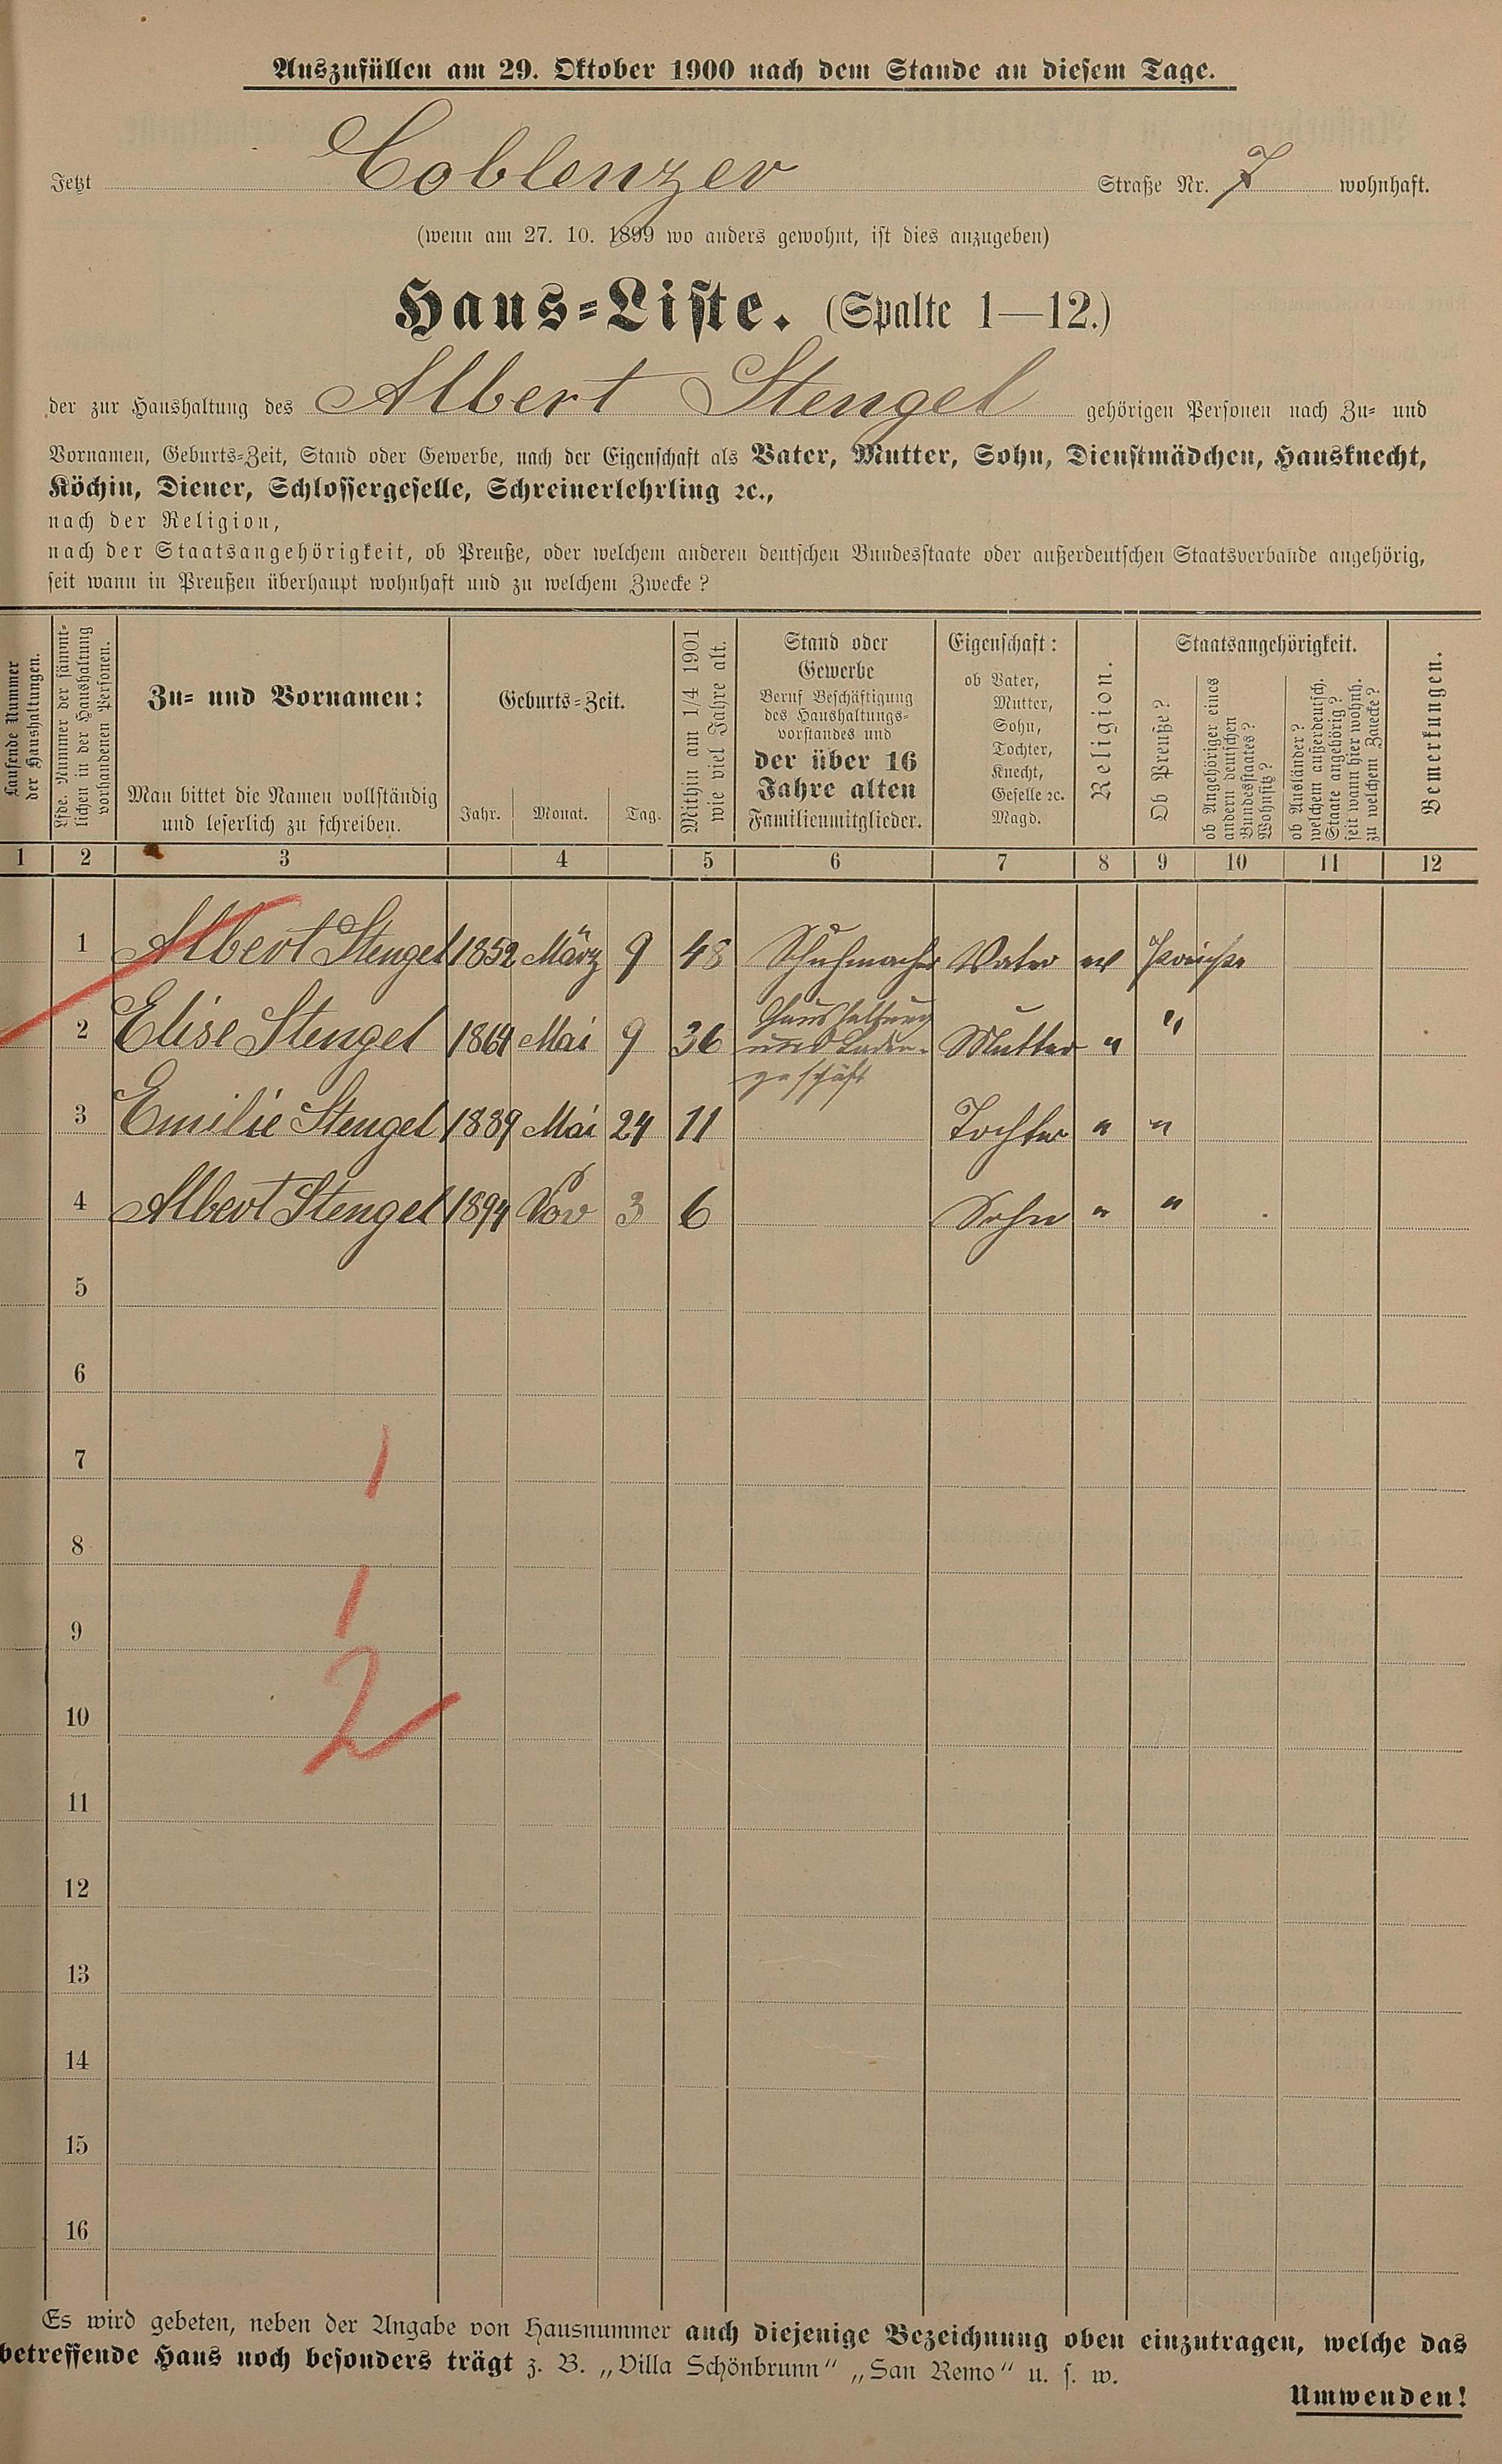 Auszufüllen am 29. Oktober 1900 nach dem Stande an diesem Tage.
Jetzt Coblenzer Straße Nr. 7 wohnhaft.
(wenn am 27. 10. 1899 wo anders gewohnt, ist dies anzugeben)
Haus-Liste. (Spalte 1—12.)
der zur Haushaltung des Albert Stengel gehörigen Personen nach Zu- und
Vornamen, Geburts-Zeit, Stand oder Gewerbe, nach der Eigenschaft als Vater, Mutter, Sohn, Dienstmädchen, Hausknecht,
Köchin, Diener, Schlossergeselle, Schreinerlehrling ꝛc.,
nach der Religion,
nach der Staatsangehörigkeit, ob Preuße, oder welchem anderen deutschen Bundesstaate oder außerdeutschen Staatsverbande angehörig,
seit wann in Preußen überhaupt wohnhaft und zu welchem Zwecke?
Laufende Nummer
der Haushaltungen.
Lfde. Nummer der sämmt-
lichen in der Haushaltung
vorhandenen Personen.
Zu- und Vornamen:
Man bittet die Namen vollständig
und leserlich zu schreiben.
Geburts-Zeit.
Jahr. Monat. Tag.
Mithin am 1/4 1901
wie viel Jahre alt.
Stand oder
Gewerbe
Beruf Beschäftigung
des Haushaltungs-
vorstandes und
der über 16
Jahre alten
Familienmitglieder.
Eigenschaft:
ob Vater,
Mutter,
Sohn,
Tochter,
Knecht,
Geselle ꝛc.
Magd.
Religion.
Staatsangehörigkeit.
Ob Preuße?
ob Angehöriger eines
andern deutschen
Bundesstaates?
Wohnsitz?
ob Ausländer?
welchem außerdeutsch.
Staate angehörig?
seit wann hier wohnh.
zu welchem Zwecke?
Bemerkungen.
1 2 3 4 5 6 7 8 9 10 11 12
1 Albert Stengel 1852 März 9 48 Schuhmacher Vater ev Preuße
2 Elise Stengel 1864 Mai 9 36 Haushaltung und Laden-geschäft Mutter " "
3 Emilie Stengel 1889 Mai 24 11 Tochter " "
4 Albert Stengel 1894 Nov 3 6 Sohn " "
5
6
7
1
8
1
9
2
10
11
12
13
14
15
16
Es wird gebeten, neben der Angabe von Hausnummer auch diejenige Bezeichnung oben einzutragen, welche das
betreffende Haus noch besonders trägt z. B. „Villa Schönbrunn“ „San Remo“ u. s. w.
Umwenden!